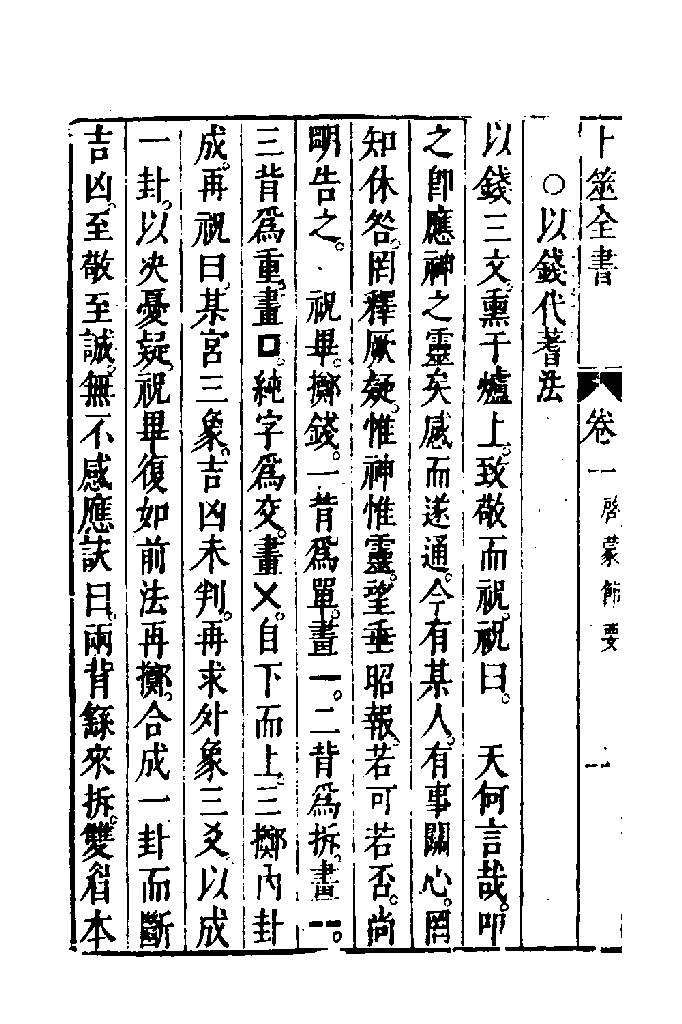 卜筮全書 卷一 啓蒙節要 一
○以錢代蓍法
以錢三文。熏于爐上。致敬而祝。祝曰。 天何言哉。叩
之卽應。神之靈矣。感而遂通。今有某人。有事關心。罔
知休咎。罔釋厥疑。惟神惟靈。望垂昭報。若可若否。尚
明告之。 祝畢。擲錢。一背爲單。畫一。二背爲拆。畫--。
三背爲重。畫口。純字爲交。畫乂。自下而上。三擲內卦
成。再祝曰。某宮三象。吉凶未判。再求外象三爻。以成
一卦。以決憂疑。祝畢復如前法再擲。合成一卦而斷
吉凶。至敬至誠。無不感應。訣曰。兩背繇來拆。雙眉本